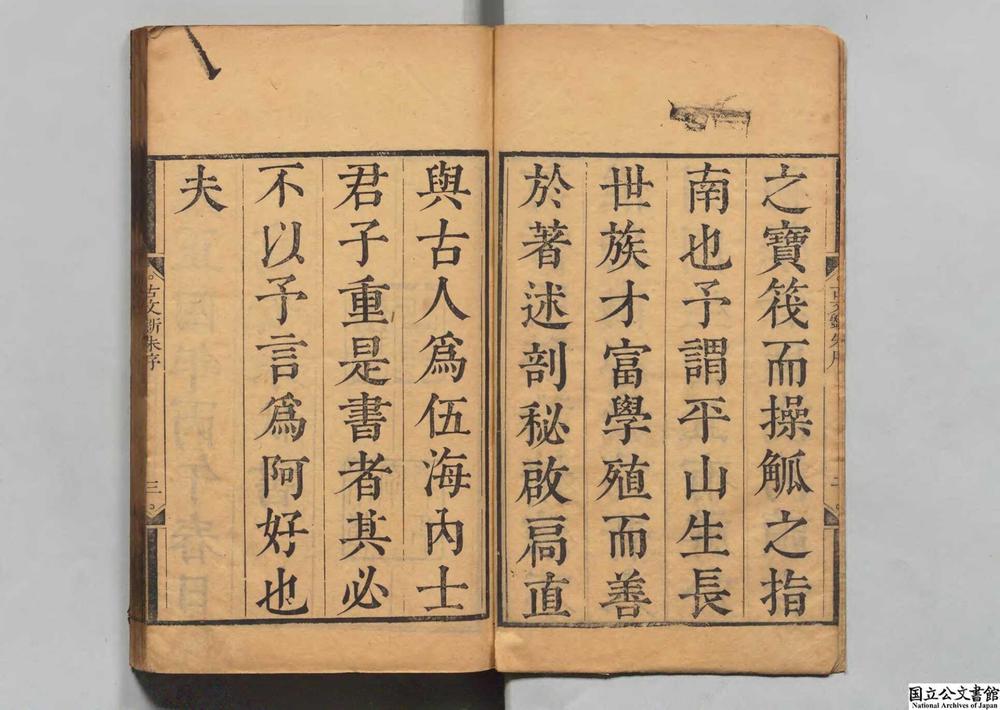 之寶筏而操觚之指
南也予謂平山生長
世族才富學殖而善
於著述剖秘啟扃直
與古人爲伍海內士
君子重是書者其必
不以予言爲阿好也
夫
古文 朱序
三
国立公文書館
National Archives of Japan